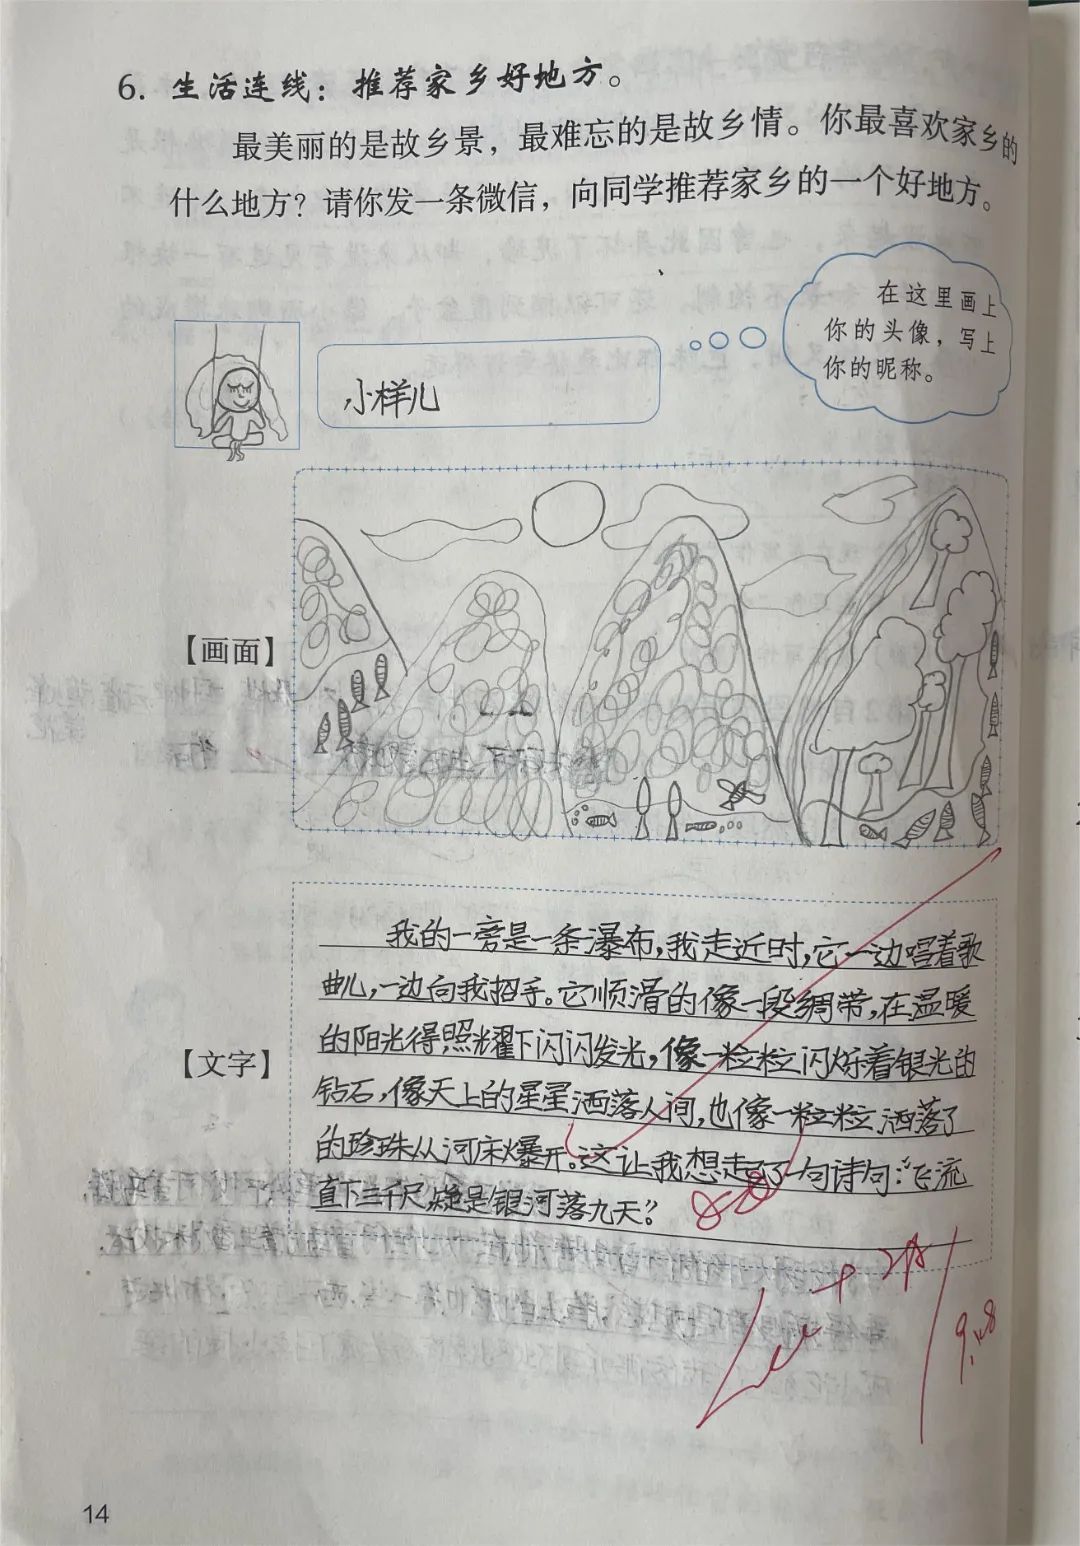 6. 生活连线：推荐家乡好地方。
最美丽的是故乡景，最难忘的是故乡情。你最喜欢家乡的
什么地方？请你发一条微信，向同学推荐家乡的一个好地方。
在这里画上
你的头像，写上
你的昵称。
小样儿
【画面】
【文字】
我的一旁是一条瀑布，我走近时，它一边唱着歌
曲儿，一边向我招手。它顺滑的像一段绸带，在温暖
的阳光得照耀下闪闪发光，像一粒粒闪烁着银光的
钻石，像天上的星星洒落人间，也像一粒粒洒落了
的珍珠从河床爆开。这让我想起了一句诗句：“飞流
直下三千尺，疑是银河落九天？
14